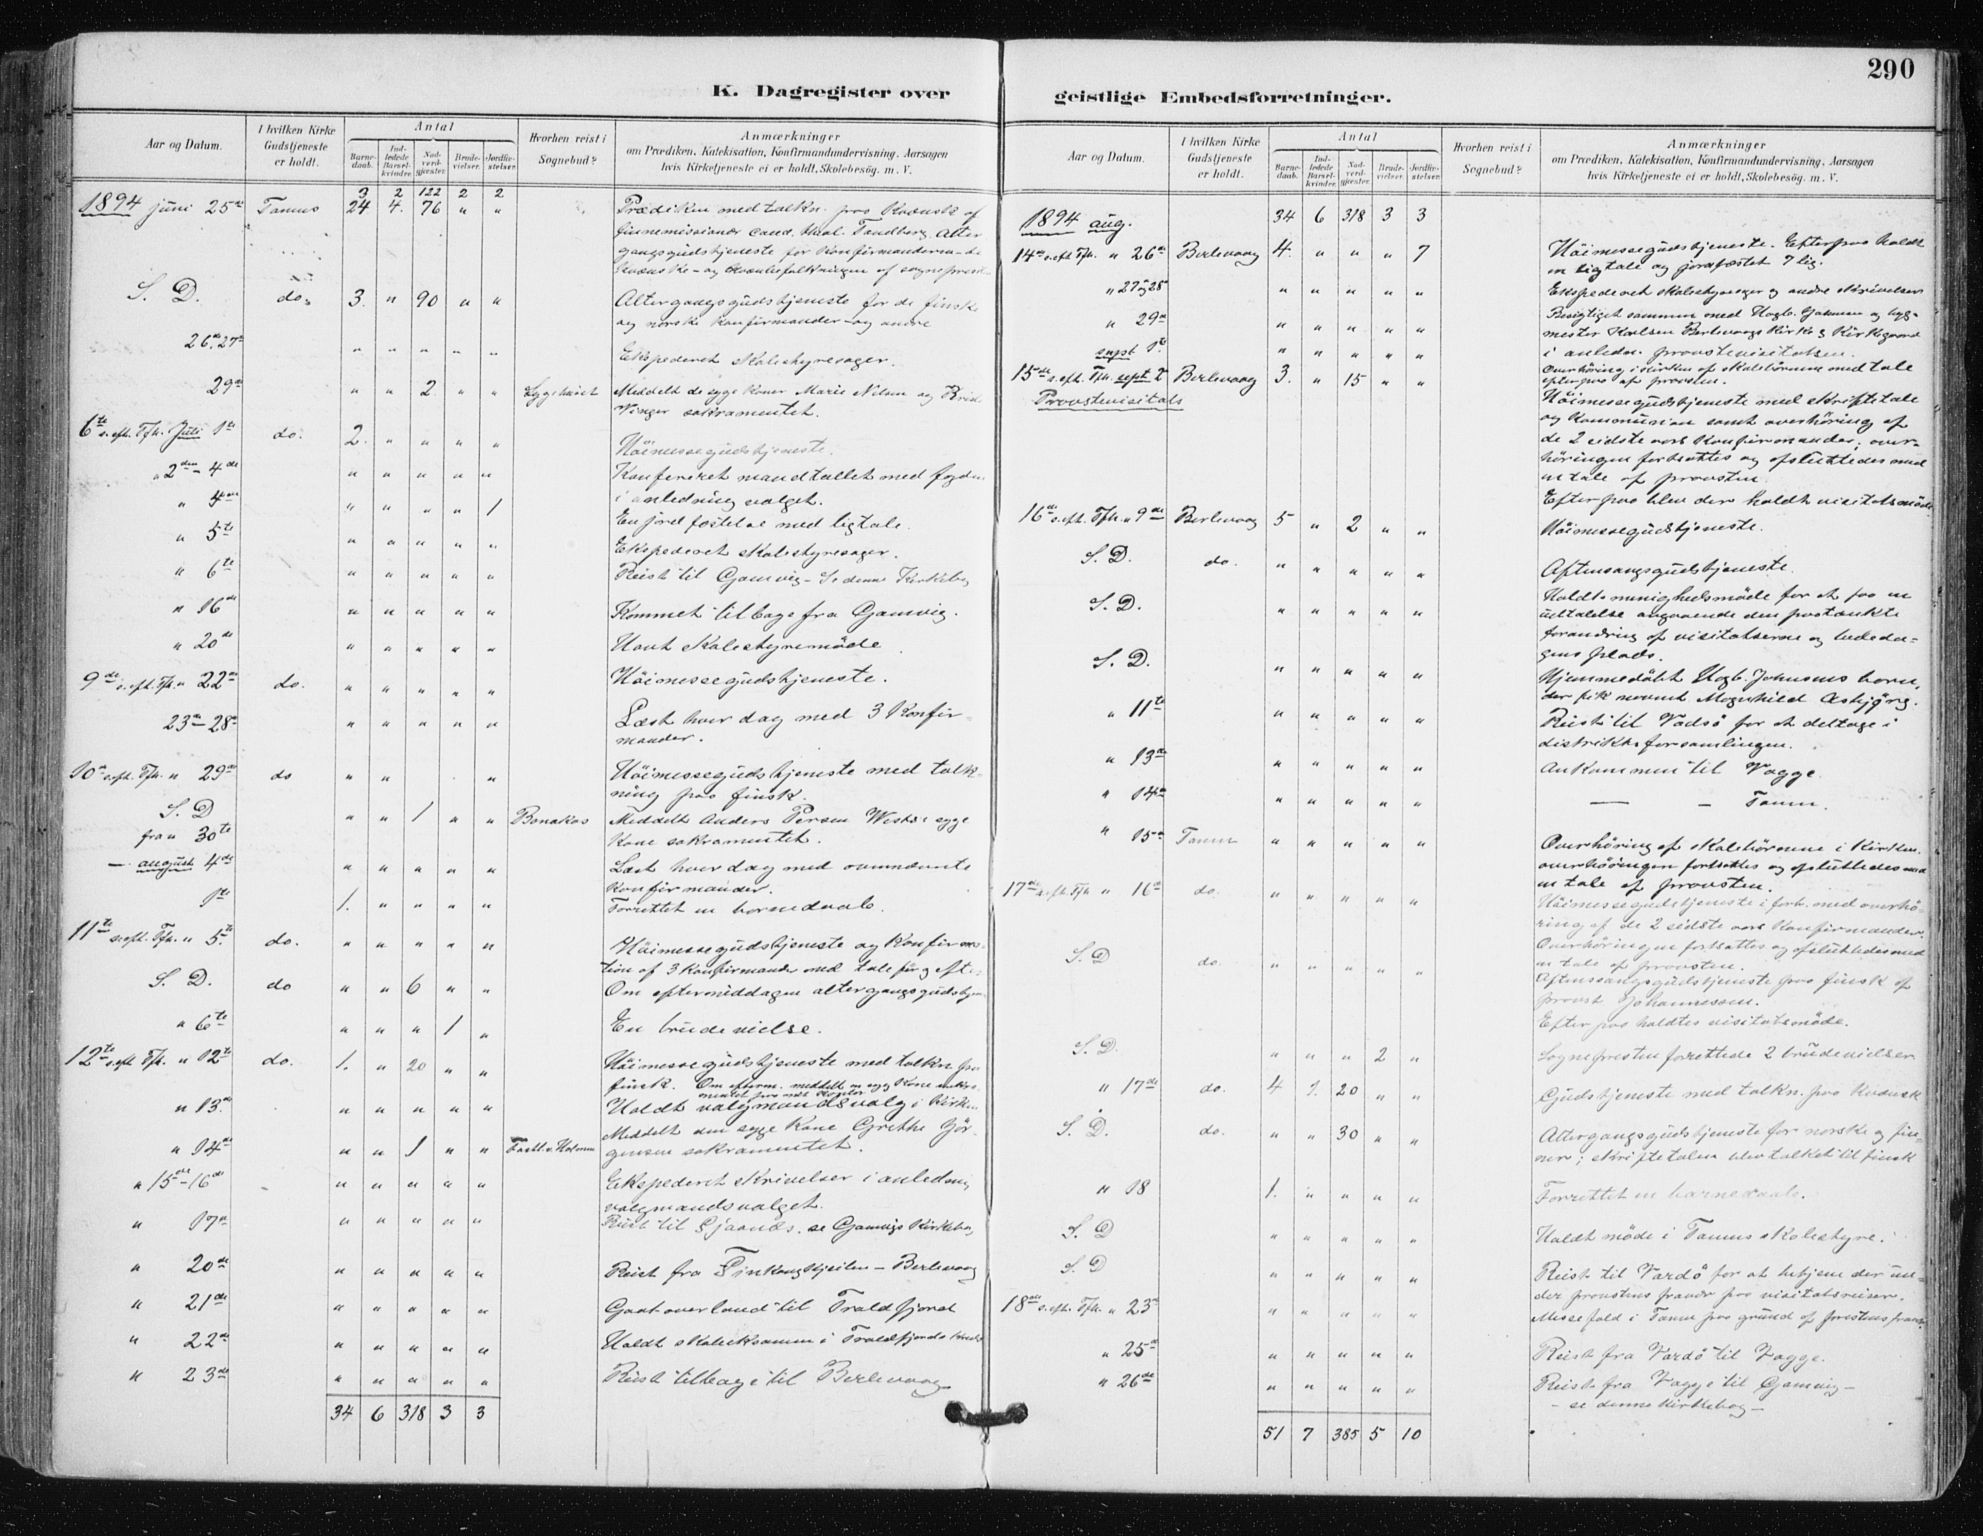 290
K. Dagregister over
geistlige Embedsforretninger.
Aar og Datum.
I hvilken Kirke
Gudstjeneste
er holdt.
Antal
Barne-
daab.
Ind-
ledede
Barsel-
kvinder.
Nad-
verd-
gjæster.
Brude-
vielser.
Jordfæ-
stelser.
Hvorhen reist i
Sognebud?
Anmærkninger
om Prædiken, Katekisation, Konfirmandundervisning. Aarsagen
hvis Kirketjeneste ei er holdt, Skolebesøg. m. V.
3 2 122 2 2
1894 juni 25de Tanens 24 4. 76 " " Prædiken med tolkn. paa Kvænsk af
finnemissionær cand. Tandberg. Alter
gangsgudstjeneste for Konfirmanderne
S. D. do. 3. " 90 " " Altergangsgudstjeneste for de finske
og norske Konfirmander og andre
26de 27de " " " " " Ekspederet skolestyresager.
29de " " 2. " " Sygehuset Meddelt de syge koner Marie Nilsen og
sakramentet.
6te s. eft. Tfh. Juli 1ste do. 2. " " " " Höimessegudstjeneste.
" 2den – 4de " " " " " Konfereret mandtallet med fogden
i anledning valget.
" 4de " " " " 1 En jordfæstelse med ligtale.
" 5te " " " " " Ekspederet skolestyresager.
" 6te " " " " " Reist til Gamvig – Se denne Kirkebog
" 16de " " " " " Kommet tilbage fra Gamvig.
" 20de " " " " " Havt Skolestyremöde
9de s. eft. Tfh. " 22de do. " " " " " Höimessegudstjeneste.
23de – 28de " " " " " Læst hver dag med 3 Konfir-
mander.
10de s. eft. Tfh. " 29de do " " " Höimessegudstjeneste med tolk-
ning paa finsk.
S. D " " 1 " " Bonakas Meddelt Anders Persen syge
Kone sakramentet.
fra " 30te
– august 4de " " " " " Læst hver dag med ovennævnte
Konfirmander.
1ste 1. " " " " Forrettet en barnedaab.
11te s. eft. Tfh. " 5te do. " " " " " Höimessegudstjeneste og Konfirma-
tion af 3 Konfirmander med tale för og efter.
S. D. do " " 6 " " Om eftermiddagen altergangsgudstjen.
" 6te " " " 1 " En brudevielse.
12te s. eft. Tfh. " 12te do. 1. " 20 " " Höimessegudstjeneste med tolkn. paa
finsk. Om efterm. meddelt en syg Kone sakra-
mentet
" 13de " " " " " Holdt valgmandsvalg i Kirken
" 14de " " 1 " " Meddelt den syge Kone Grethe Jör-
gensen sakramentet.
" 15de – 16de " " " " " Ekspederet skrivelser i anledning
valgmandsvalget.
" 17de " " " " " Reist til se Gamvigs Kirkebog
" 20de " " " " " Reist fra Finkongkjeilen – Berlevaag
" 21de " " " " " Gaat overland til Troldfjord
" 22de " " " " " Holdt skoleeksamen i Troldfjords kreds
" 23de " " " " " Reist tilbage til Berlevaag
34 6 318 3 3
Aar og Datum.
I hvilken Kirke
Gudstjeneste
er holdt.
Antal
Barne-
daab.
Ind-
ledede
Barsel-
kvinder.
Nad-
verd-
gjæster.
Brude-
vielser.
Jordfæ-
stelser.
Hvorhen reist i
Sognebud?
Anmærkninger
om Prædiken, Katekisation, Konfirmandundervisning. Aarsagen
hvis Kirketjeneste ei er holdt, Skolebesøg. m. V.
1894 aug. 34 6 318 3 3
14de s. eft. Tfh. " 26de Berlevaag 4. " " " 7 Höimessegudstjeneste. Efterpaa holdt
en ligtale og jordfæstet 7 lig.
" 27 og 28 " " " " " Ekspederet skolestyresager og andre skrivelser
" 29de " " " " " Besigtiget sammen med Hogb. Johnsen og byg-
mester Karlsen Berlevaags Kirke & Kirkegaard
i anledn. provstevisitatsen.
sept 1ste " " " " " Overhöring i kirken af skolebörnene med tale
efterpaa af provsten.
15de s. eft. Tfh. sept 2 Berlevaag 3. " 15 " "
Provstevisitats Höimessegudstjeneste med skriftetale
og kommunion samt overhöring af
de 2 sidste aars Konfirmander; over-
höringen fortsattes og afsluttedes med
en tale af provsten.
Efterpaa blev der holdt visitatsmöde
16de s. eft. Tfh. " 9de Berlevaag 5 " 2 " " Höimessegudstjeneste.
S. D. do. " " " " " Aftensangsgudstjeneste.
S. D. " " " " " Holdt menighedsmöde for at faa en
udtalelse angaaende den paatænkte
forandring af visitatserne og bededa-
gens plads.
S. D. " " " " " Hjemmedöbt Hogb. Johnsens barn,
der fik navnet Magnhild Asbjörg.
" 11te " " " " " Reist til Vadsö for at deltage i
distriktsforsamlingen.
" 13de " " " " " Ankommen til Vagge.
" 14de " " " " " — – Tanen.
" 15de Tanen " " " " " Overhöring af skolebörnene i Kirken.
overhöringen fortsattes og afsluttedes med
en tale af provsten.
17de s. eft. Tfh " 16de do. " " " " " Höimessegudstjeneste i forb. med overhö-
ring af de 2 sidste aars Konfirmander.
Overhöringen fortsattes og afsluttedes med
en tale af provsten.
S. D do. " " " " " Aftensangsgudstjeneste paa finsk af
provst Johannessen.
Efterpaa holdtes visitatsmöde.
S. D. " " " 2 " Sognepresten forrettede 2 brudevielser
" 17de do. 4 1. 20 " " Gudstjeneste med tolkn. paa Kvænsk
S. D. do. " " 30 " " Altergangsgudstjeneste for norske og fin-
ner; skriftetalen blev tolket til finsk
" 18 1. " " " " Forrettet en barnedaab.
S. D " " " " " Holdt möde i Tanens skolestyre.
S. D " " " " " Reist til Vardö for at betjene der un-
der provstens fravær paa visitatsreisen.
18de s. eft. Tfh. " 23de " " " " " Messefald i Tanen paa grund af prestens fravær.
" 25de " " " " " Reist fra Vardö til Vagge.
" 26de " " " " " Reist fra Vagge til Gamvig –
– se denne Kirkebog –
51 7 385 5 10